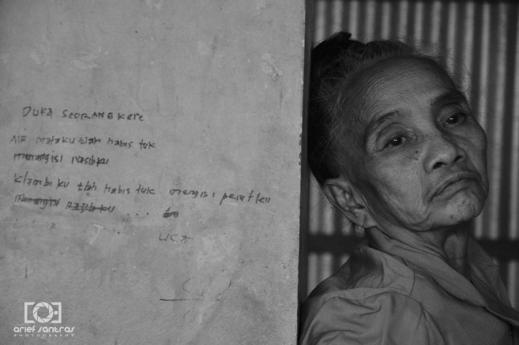 DUKA SEORANG KERE
AIR mataku tlah habis tuk
menangisi Nasibku
Klambi ku tlah habis tuk mengisi perutku
menangisi
arief santras
PHOTOGRAPHY